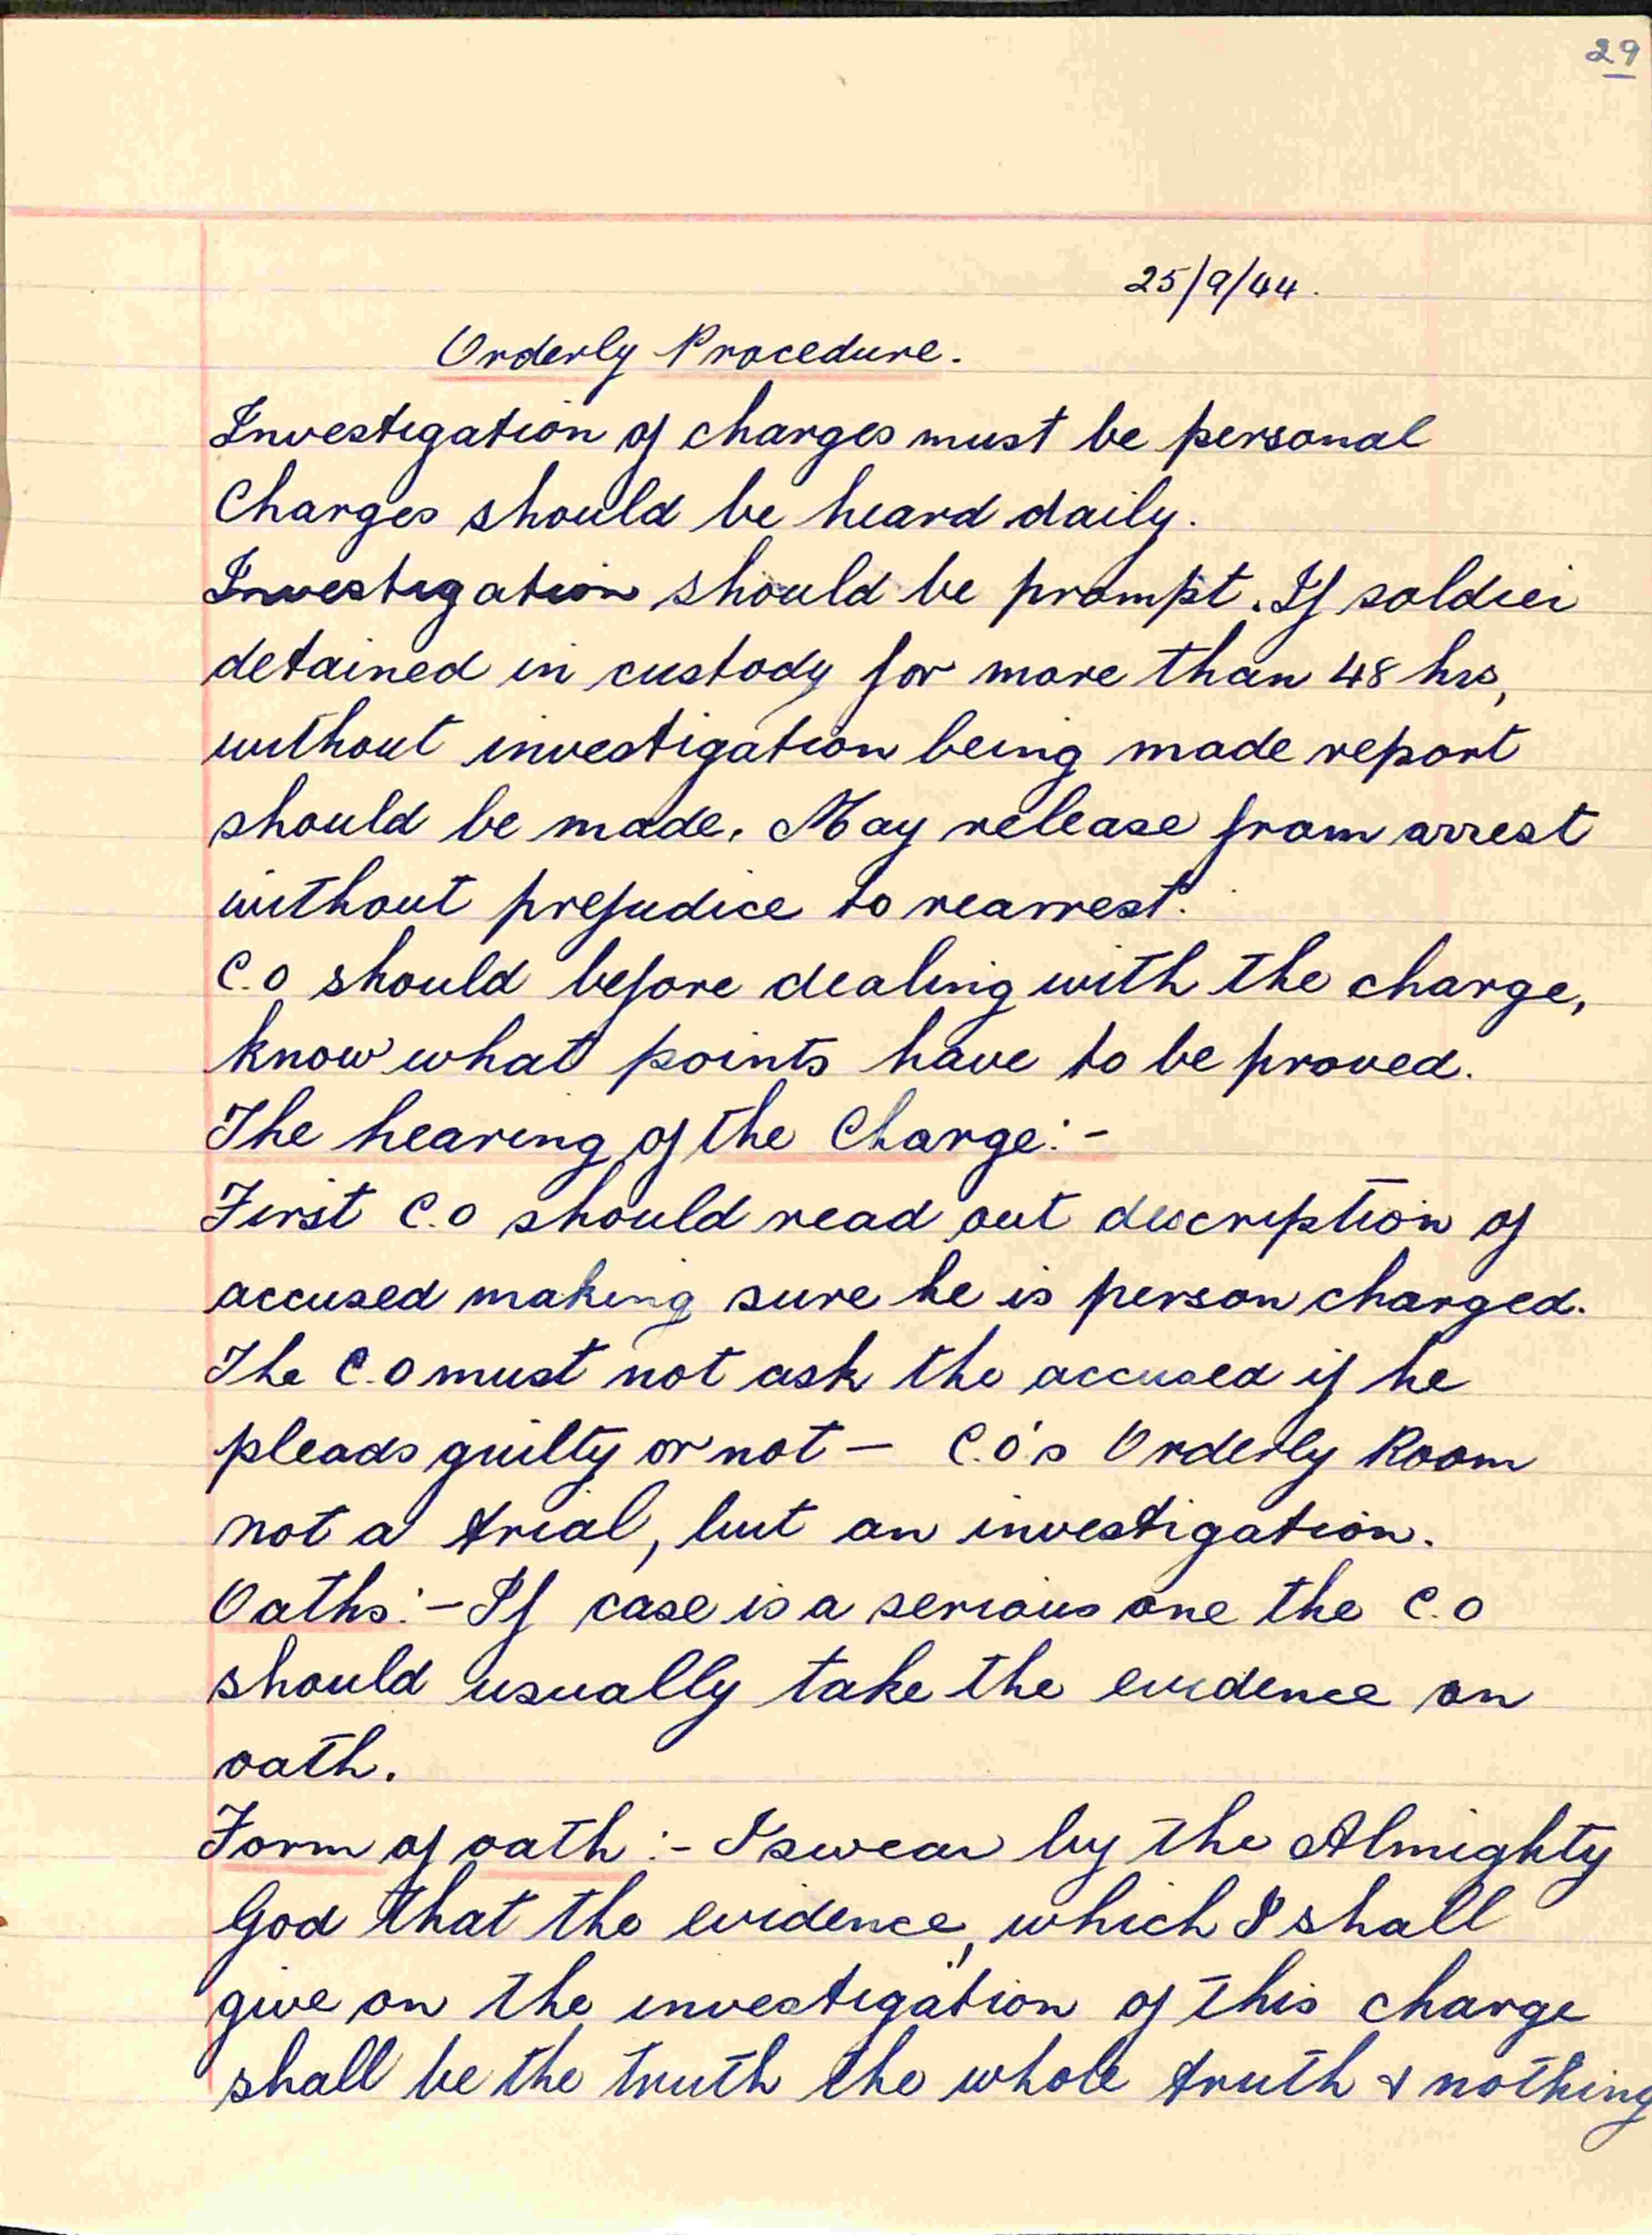 29
25/9/44.
Orderly Procedure.
Investigation of charges must be personal
Charges should be heard daily.
Investigation should be prompt. If soldier
detained in custody for more than 48 hrs,
without investigation being made report
should be made. May release from arrest
without prejudice to rearrest.
C.O should before dealing with the charge,
know what points have to be proved.
The hearing of the Charge:-
First C.O should read out description of
accused making sure he is person charged.
The C.O must not ask the accused if he
pleads guilty or not - C.O's Orderly Room
not a trial, but an investigation.
Oaths:- If case is a serious one the C.O
should usually take the evidence on
oath.
Form of oath:- I swear by the Almighty
God that the evidence, which I shall
give on the investigation of this charge
shall be the truth the whole truth & nothing